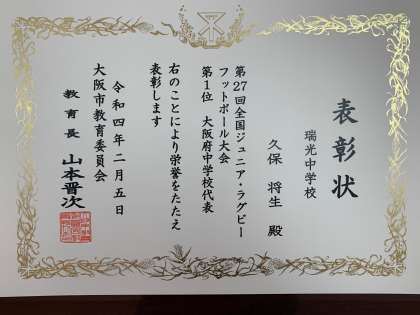 表彰状
瑞光中学校
久保 将生 殿
第27回全国ジュニア・ラグビー
フットボール大会
第1位 大阪府中学校代表
右のことにより栄誉をたたえ
表彰します
令和四年二月五日
大阪市教育委員会
教育長 山本晋次